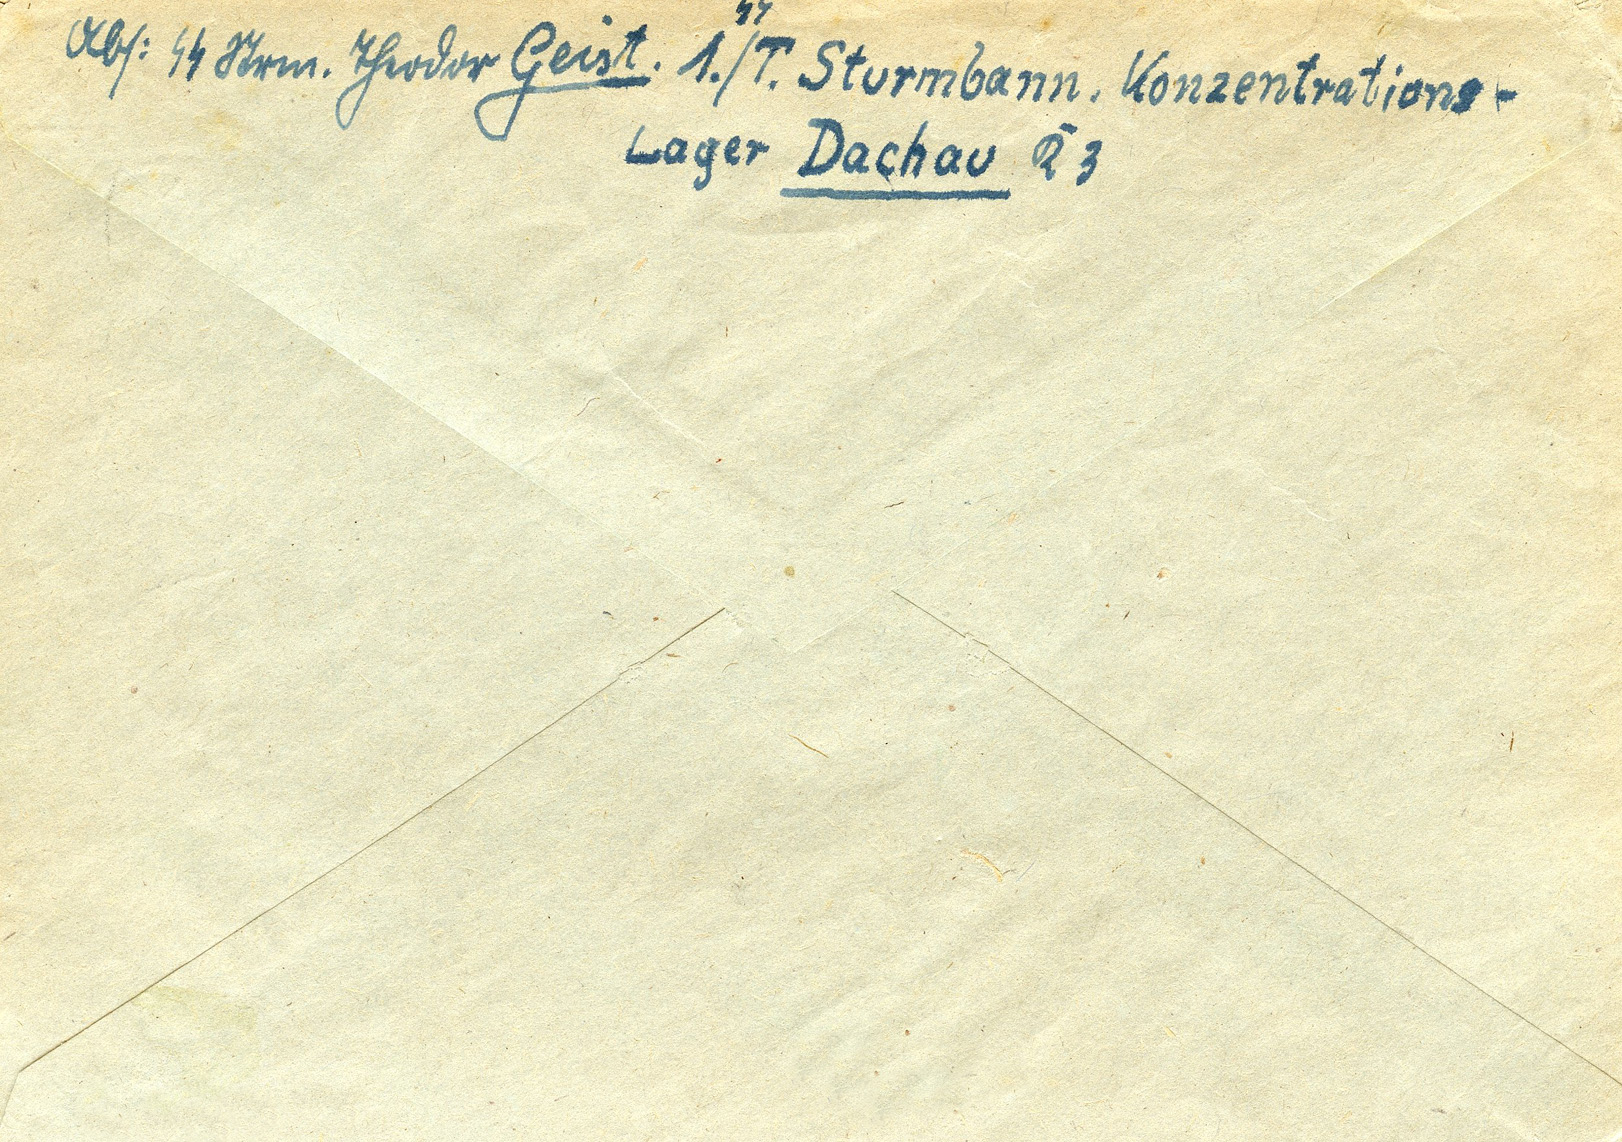 Abs: SS Strm. Theodor Geist. 1./SS T. Sturmbann. Konzentrations-
Lager Dachau K 3